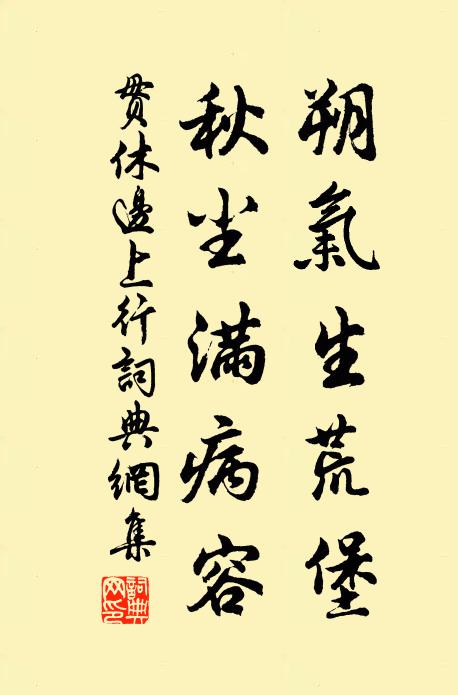 朔氣生荒堡
秋尘滿病容
贯休邊上行詞典網集
詞典網印